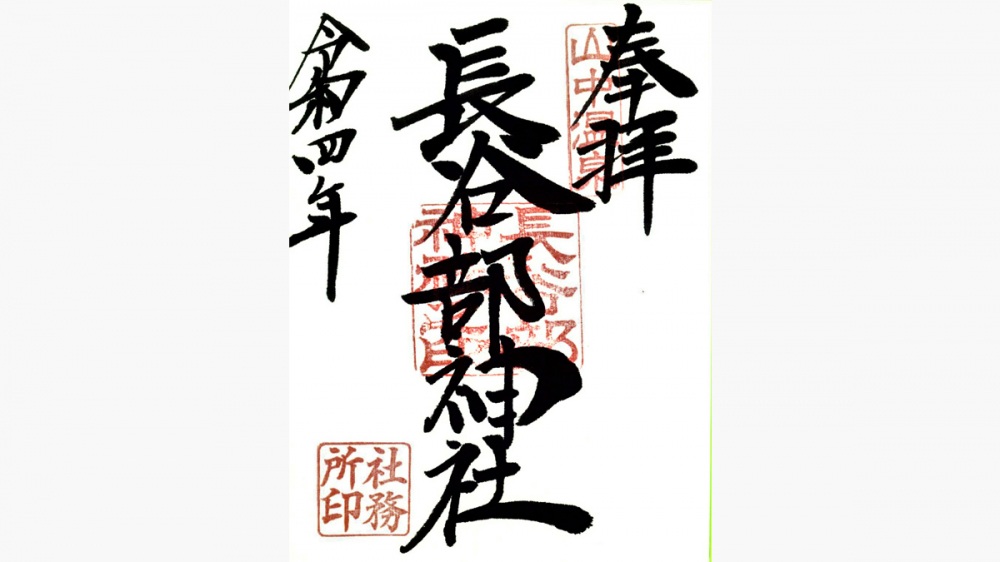 奉拝
山中温泉
長谷部神社
長谷部
神社
令和四年
社務
所印